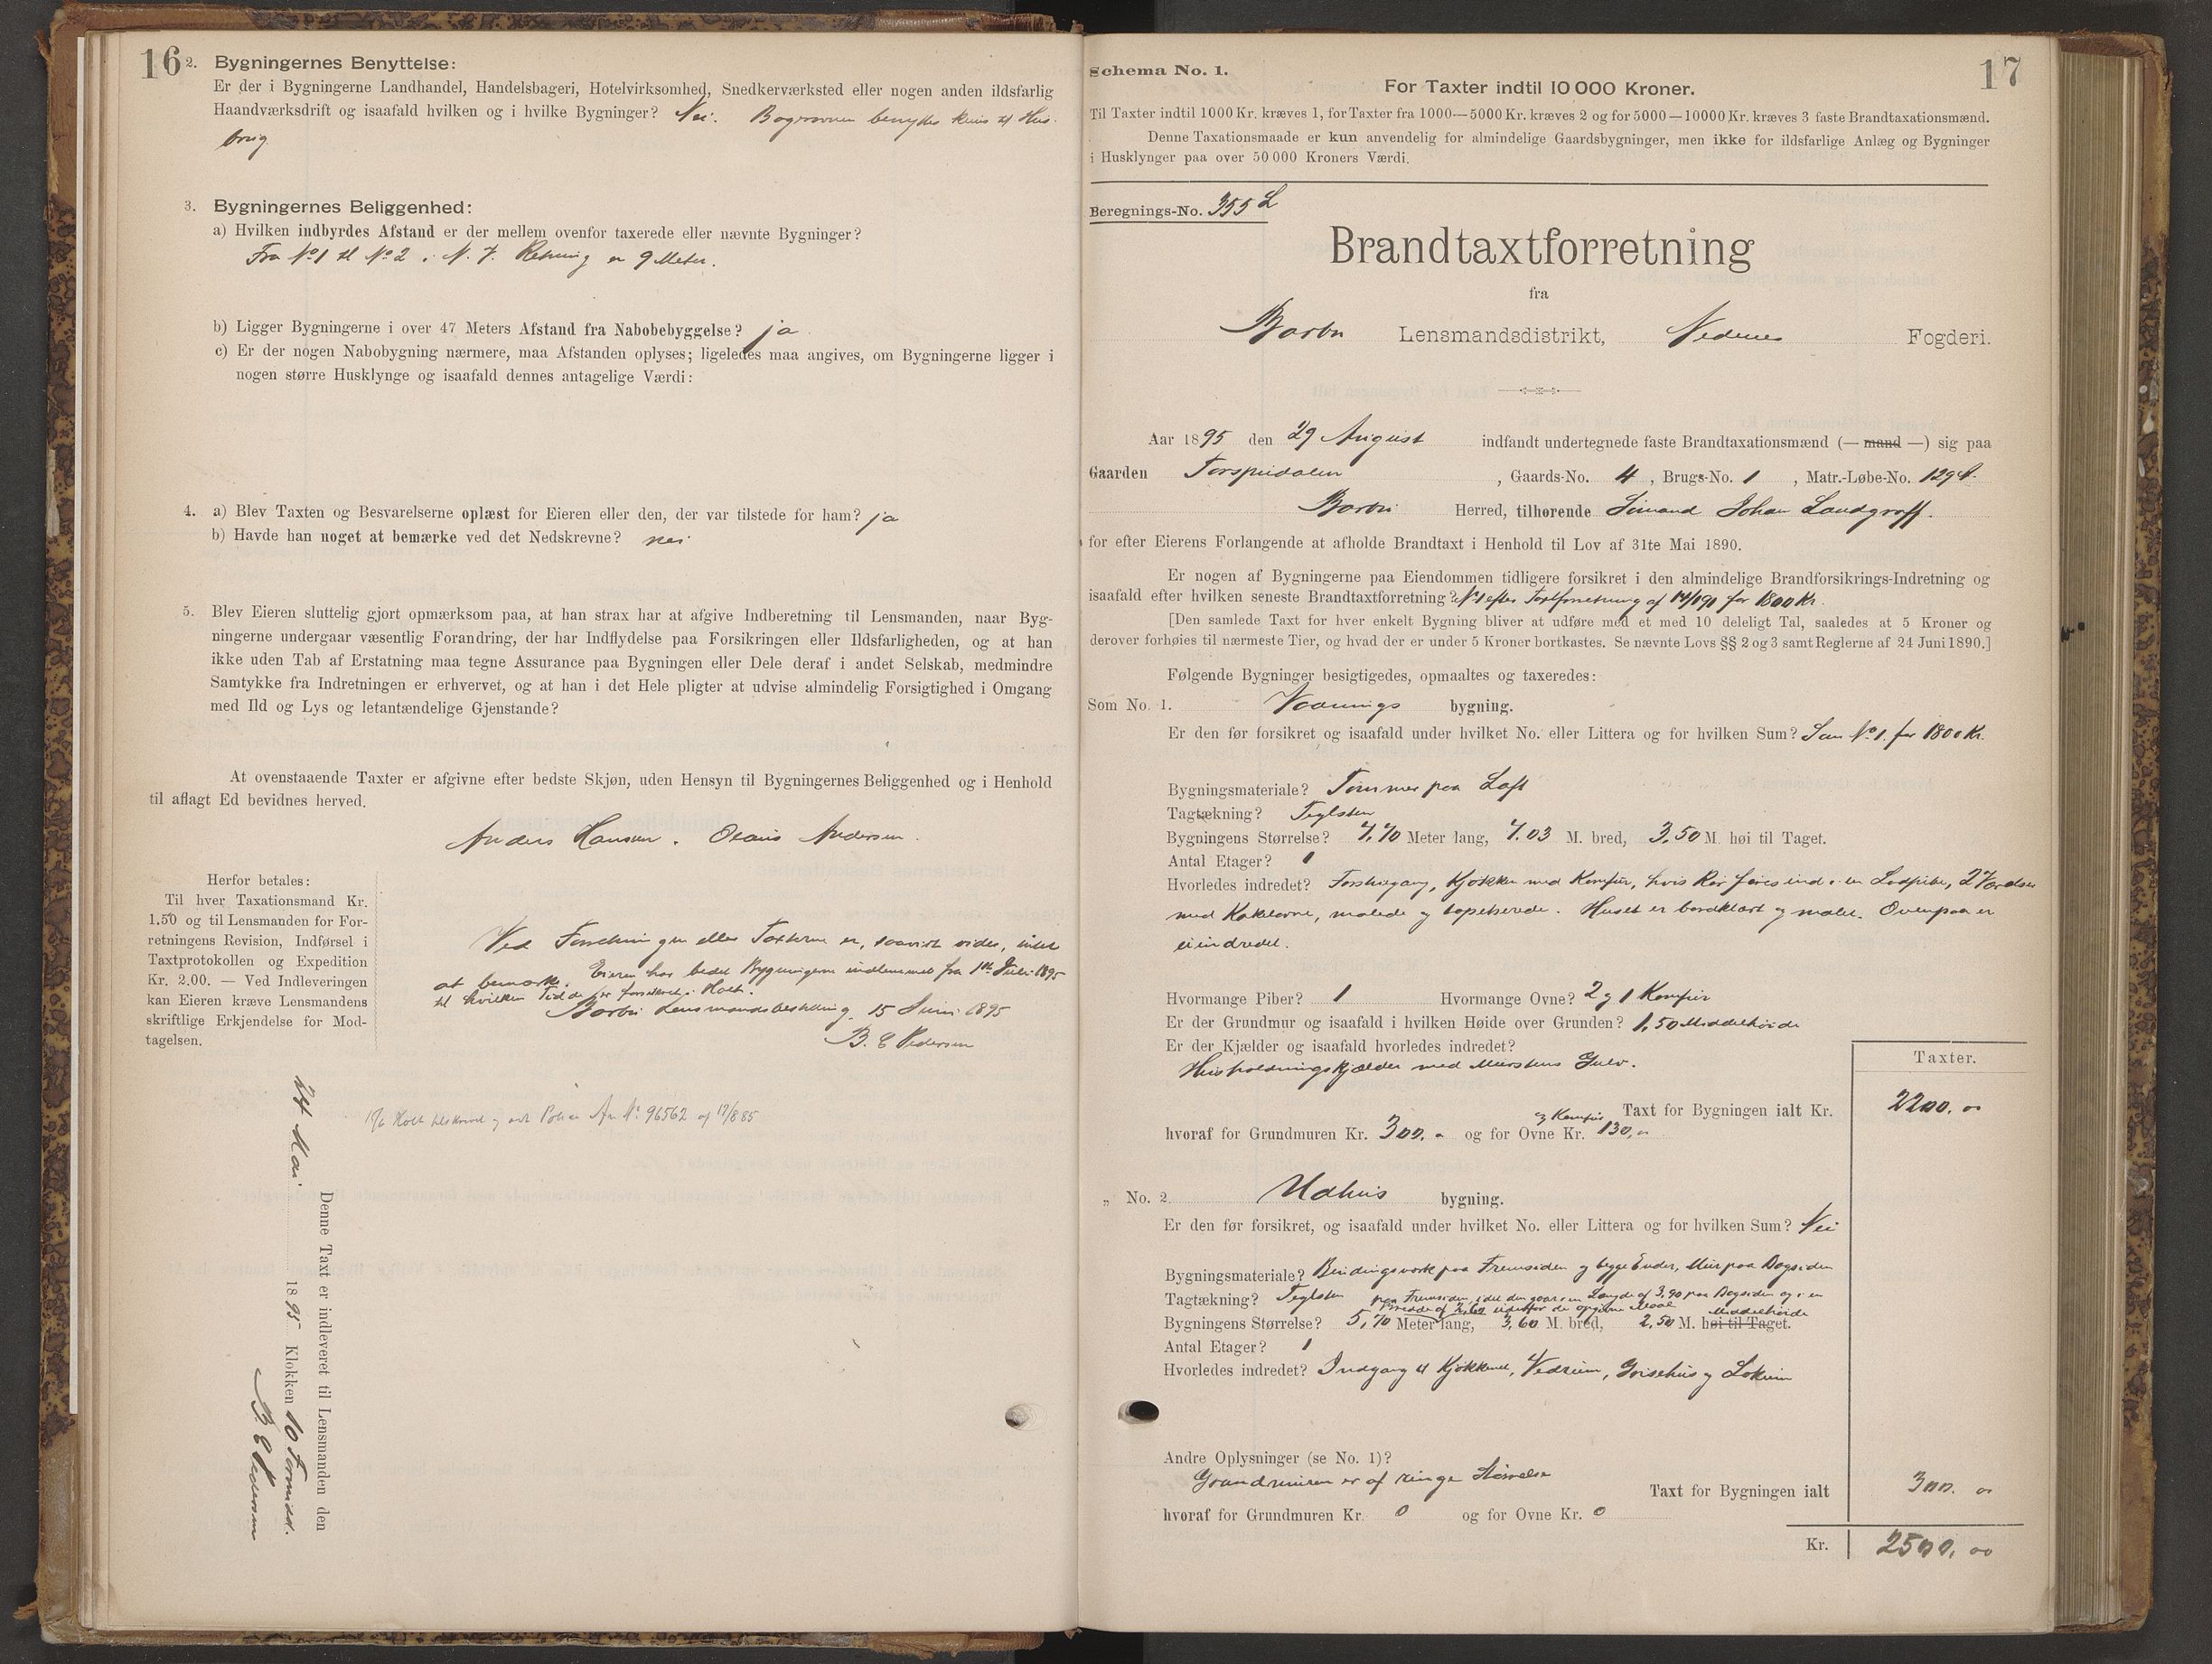 16
2. Bygningernes Benyttelse:
Er der i Bygningerne Landhandel, Handelsbageri, Hotelvirksomhed, Snedkerværksted eller nogen anden ildsfarlig
Haandværksdrift og isaafald hvilken og i hvilke Bygninger? Nei. Bagerovnen benyttes kuns til Hus-
brug
3. Bygningernes Beliggenhed:
a) Hvilken indbyrdes Afstand er der mellem ovenfor taxerede eller nævnte Bygninger?
Fra No 1 til No 2 i N. V. Retning er 9 Meter.
b) Ligger Bygningerne i over 47 Meters Afstand fra Nabobebyggelse? ja
c) Er der nogen Nabobygning nærmere, maa Afstanden oplyses; ligeledes maa angives, om Bygningerne ligger i
nogen større Husklynge og isaafald dennes antagelige Værdi:
4. a) Blev Taxten og Besvarelserne oplæst for Eieren eller den, der var tilstede for ham? ja
b) Havde han noget at bemærke ved det Nedskrevne? nei
5. Blev Eieren sluttelig gjort opmærksom paa, at han strax har at afgive Indberetning til Lensmanden, naar Byg-
ningerne undergaar væsentlig Forandring, der har Indflydelse paa Forsikringen eller Ildsfarligheden, og at han
ikke uden Tab af Erstatning maa tegne Assurance paa Bygningen eller Dele deraf i andet Selskab, medmindre
Samtykke fra Indretningen er erhvervet, og at han i det Hele pligter at udvise almindelig Forsigtighed i Omgang
med Ild og Lys og letantændelige Gjenstande?
At ovenstaaende Taxter er afgivne efter bedste Skjøn, uden Hensyn til Bygningernes Beliggenhed og i Henhold
til aflagt Ed bevidnes herved.
Anders Hansen. Olaus Andersen.
Herfor betales:
Til hver Taxationsmand Kr.
1.50 og til Lensmanden for For-
retningens Revision, Indførsel i
Taxtprotokollen og Expedition
Kr. 2.00. — Ved Indleveringen
kan Eieren kræve Lensmandens
skriftlige Erkjendelse for Mod-
tagelsen.
Ved Forretningen eller Taxterne er, saavidt vides, intet
at bemærke. Eieren har bedet Bygningerne indlemmet fra 1ste Juli 1895
til hvilken Tid de er forsikret i Holt.
Barbu Lensmandsbestilling 15 Juni 1895
B. E Pedersen
Holt tilskrevet og Police No 96562 af 17/8 85
Denne Taxt er indleveret til Lensmanden den
24 Mai 1895 Klokken 10 Formid.
B. E Pedersen
17
Schema No. 1.
For Taxter indtil 10 000 Kroner.
Til Taxter indtil 1000 Kr. kræves 1, for Taxter fra 1000—5000 Kr. kræves 2 og for 5000—10000 Kr. kræves 3 faste Brandtaxationsmænd.
Denne Taxationsmaade er kun anvendelig for almindelige Gaardsbygninger, men ikke for ildsfarlige Anlæg og Bygninger
i Husklynger paa over 50 000 Kroners Værdi.
Beregnings-No. 355 L
Brandtaxtforretning
fra
Barbu Lensmandsdistrikt, Nedenes Fogderi.
Aar 1895 den 29 August indfandt undertegnede faste Brandtaxationsmænd (— mand —) sig paa
Gaarden Torspudalen, Gaards-No. 4, Brugs-No. 1, Matr.-Løbe-No. 129
Barbu Herred, tilhørende Simand Johan Landgraff.
for efter Eierens Forlangende at afholde Brandtaxt i Henhold til Lov af 31te Mai 1890.
Er nogen af Bygningerne paa Eiendommen tidligere forsikret i den almindelige Brandforsikrings-Indretning og
isaafald efter hvilken seneste Brandtaxtforretning? No 1 efter Taxtforretning af for 1800 Kr.
[Den samlede Taxt for hver enkelt Bygning bliver at udføre med et med 10 deleligt Tal, saaledes at 5 Kroner og
derover forhøies til nærmeste Tier, og hvad der er under 5 Kroner bortkastes. Se nævnte Lovs §§ 2 og 3 samt Reglerne af 24 Juni 1890.]
Følgende Bygninger besigtigedes, opmaaltes og taxeredes:
Som No. 1. Vaanings bygning.
Er den før forsikret og isaafald under hvilket No. eller Littera og for hvilken Sum? Som No 1. for 1800 Kr.
Bygningsmateriale? Tømmer paa Loft
Tagtækning? Teglsten
Bygningens Størrelse? 7,70 Meter lang, 7.03 M. bred, 3,50 M. høi til Taget.
Antal Etager? 1
Hvorledes indredet? Forstuegang, Kjøkken med Komfur, hvis Rør føres ind i en Lodpibe, 2 Værelser
med Kakelovne, malede og tapetserede. Huset er bordklædt og malet. Ovenpaa er
ei indredet.
Hvormange Piber? 1 Hvormange Ovne? 2 og 1 Komfur
Er der Grundmur og isaafald i hvilken Høide over Grunden? 1,50 Middelhøide
Er der Kjælder og isaafald hvorledes indredet?
Husholdningskjælder med Murstens Gulv.
Taxter.
Taxt for Bygningen ialt Kr. 2200. 00
hvoraf for Grundmuren Kr. 300. 00 og for Ovne og Komfur Kr. 130,00
„ No. 2. Udhus bygning.
Er den før forsikret, og isaafald under hvilket No. eller Littera og for hvilken Sum? Nei
Bygningsmateriale? Bindingsværk paa Fremsiden og begge Ender, Mur paa Bagsiden
Tagtækning? Teglsten paa Fremsiden, idet den gaar i en Længde af 3,90 paa Bagsiden og i en
Bredde af udenfor de opgivne Maal Middelhøide
Bygningens Størrelse? 5,70 Meter lang, 3,60 M. bred, 2,50 M. høi til Taget.
Antal Etager? 1
Hvorledes indredet? Indgang til Kjøkkenet, Vedrum, Grisehus og Lokum
Andre Oplysninger (se No. 1)?
Grundmuren er af ringe Størrelse
Taxt for Bygningen ialt 300. 00
hvoraf for Grundmuren Kr. 0 og for Ovne Kr. 0
Kr. 2500. 00